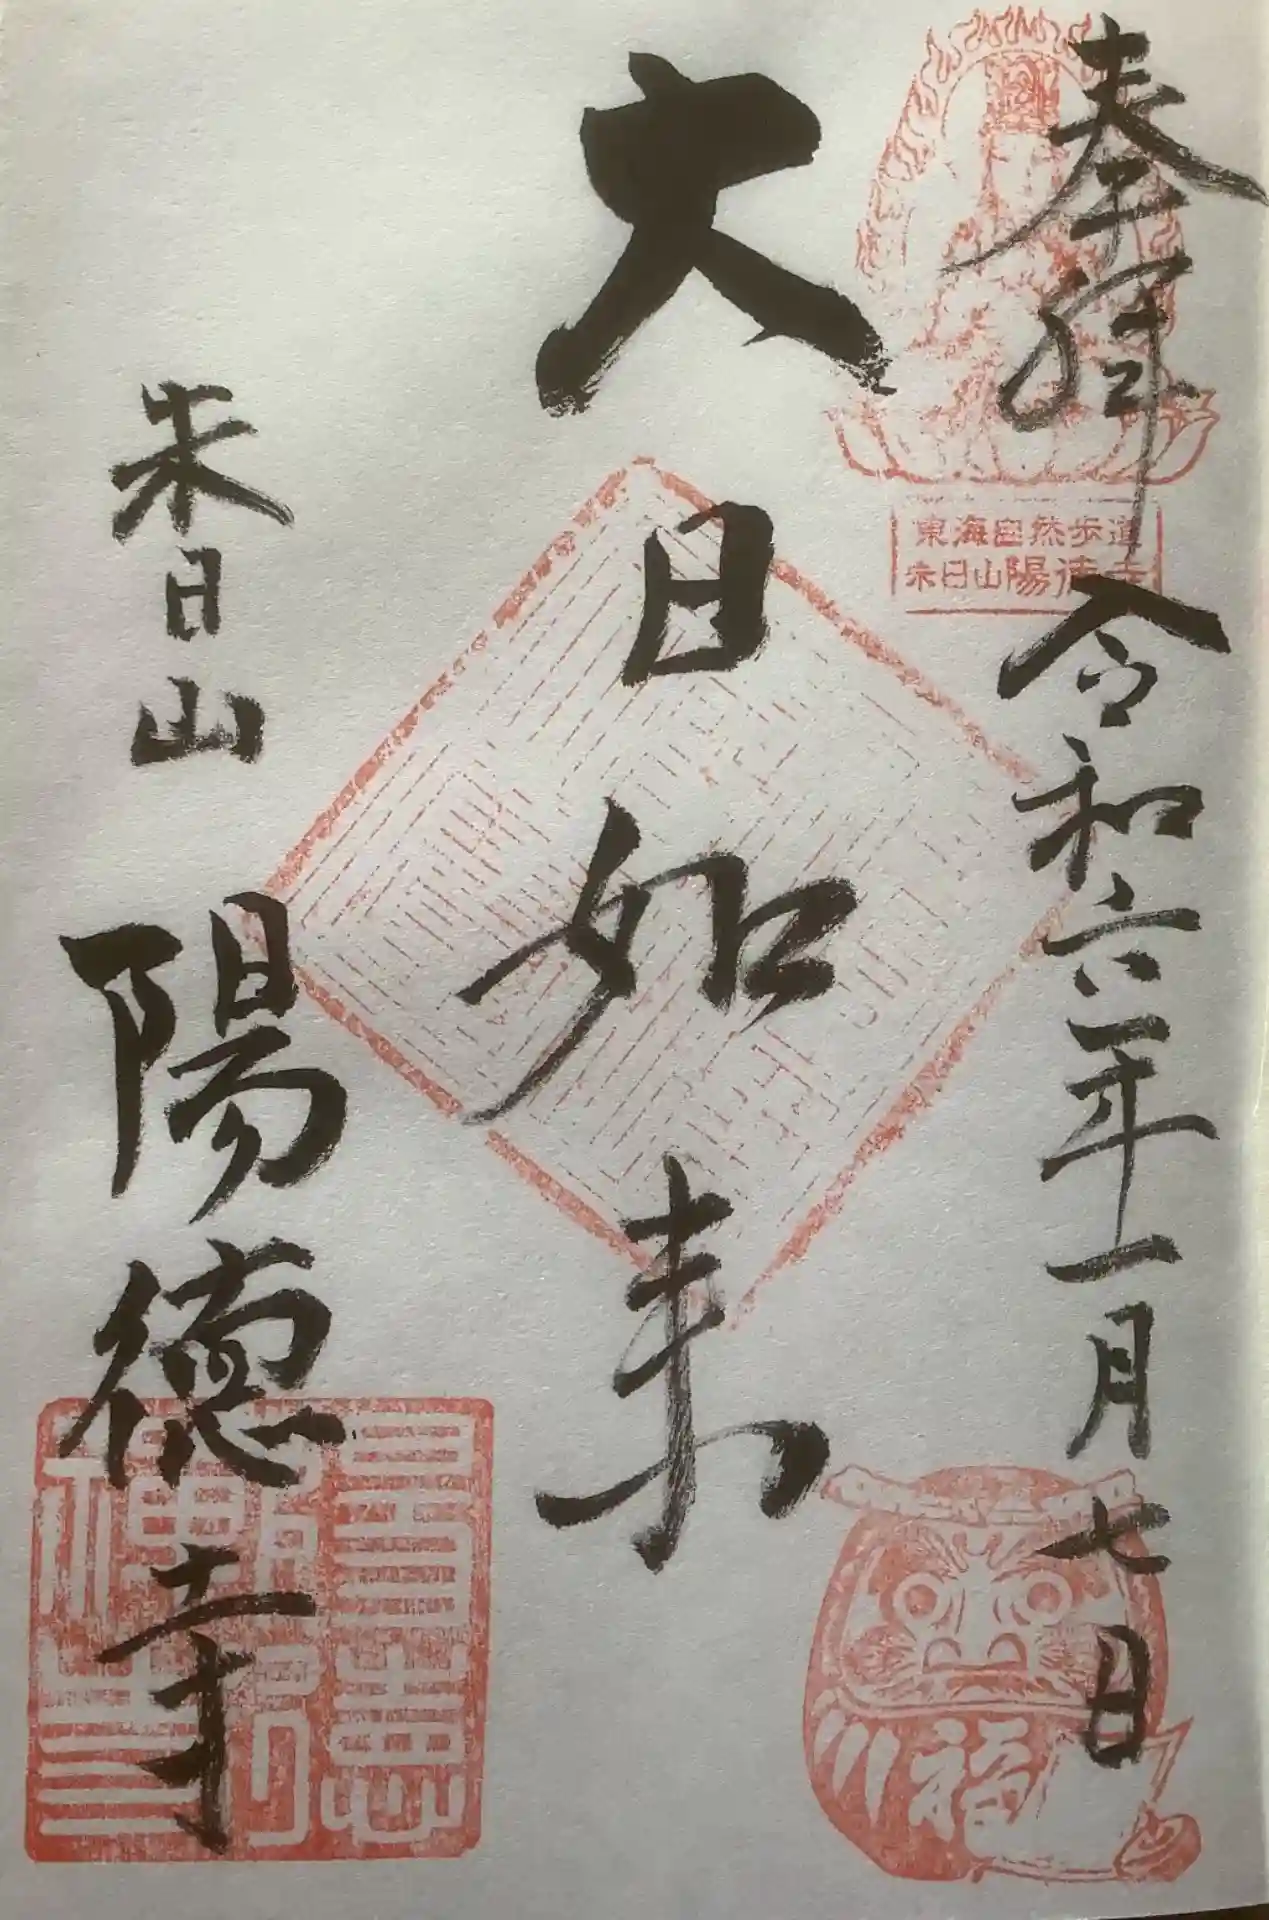 奉拝
令和六年一月七日
東海自然歩道
朱日山陽徳寺
大日如来
朱日山
陽徳寺
福